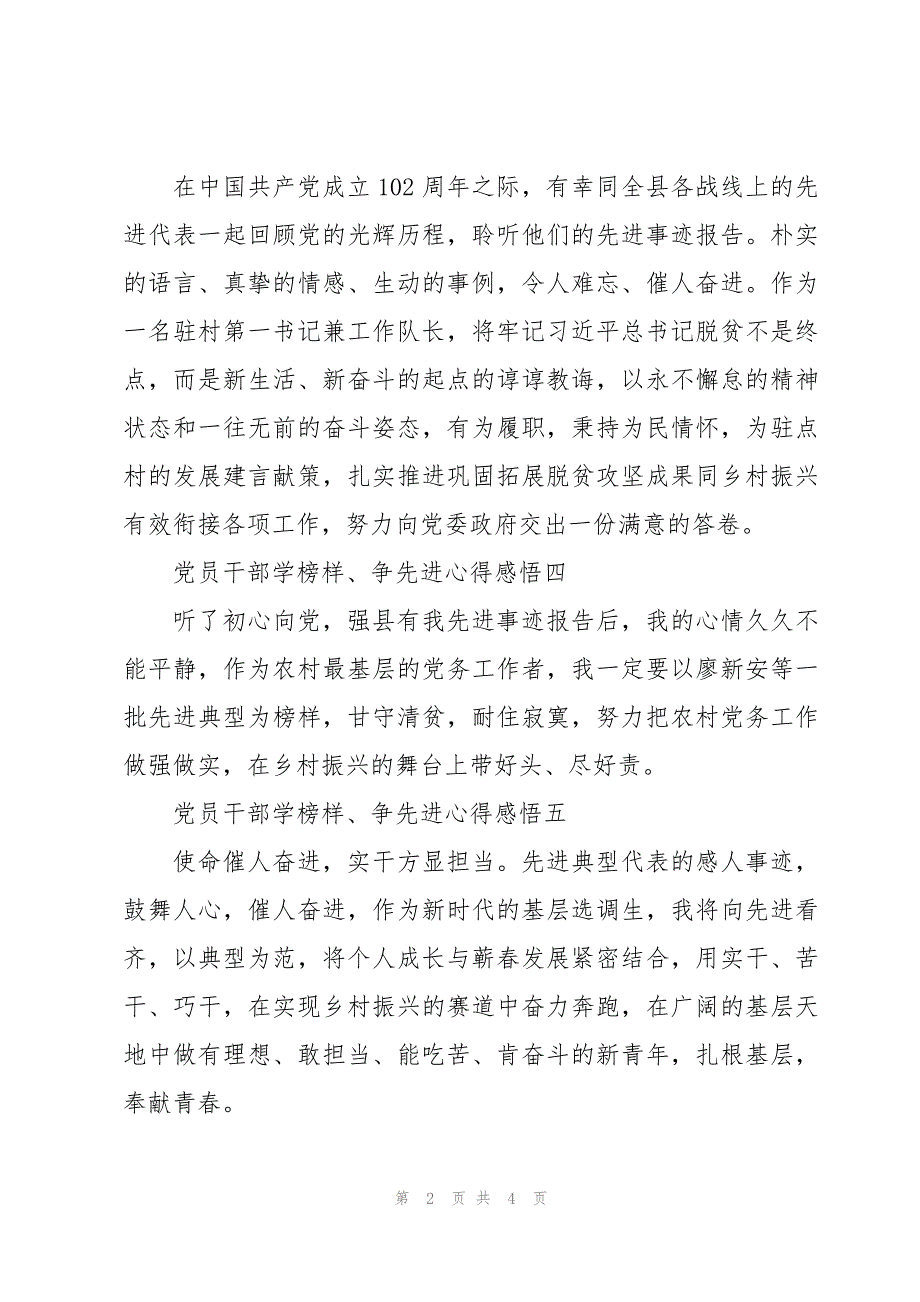 在中国共产党成立 102 周年之际，有幸同全县各战线上的先
进代表一起回顾党的光辉历程，聆听他们的先进事迹报告。朴实
的语言、真挚的情感、生动的事例，令人难忘、催人奋进。作为
一名驻村第一书记兼工作队长，将牢记习近平总书记脱贫不是终
点，而是新生活、新奋斗的起点的谆谆教诲，以永不懈怠的精神
状态和一往无前的奋斗姿态，有为履职，秉持为民情怀，为驻点
村的发展建言献策，扎实推进巩固拓展脱贫攻坚成果同乡村振兴
有效衔接各项工作，努力向党委政府交出一份满意的答卷。
党员干部学榜样、争先进心得感悟四
听了初心向党，强县有我先进事迹报告后，我的心情久久不
能平静，作为农村最基层的党务工作者，我一定要以廖新安等一
批先进典型为榜样，甘守清贫，耐住寂寞，努力把农村党务工作
做强做实，在乡村振兴的舞台上带好头、尽好责。
党员干部学榜样、争先进心得感悟五
使命催人奋进，实干方显担当。先进典型代表的感人事迹，
鼓舞人心，催人奋进，作为新时代的基层选调生，我将向先进看
齐，以典型为范，将个人成长与蕲春发展紧密结合，用实干、苦
干、巧干，在实现乡村振兴的赛道中奋力奔跑，在广阔的基层天
地中做有理想、敢担当、能吃苦、肯奋斗的新青年，扎根基层，
奉献青春。
第 2 页 共 4 页